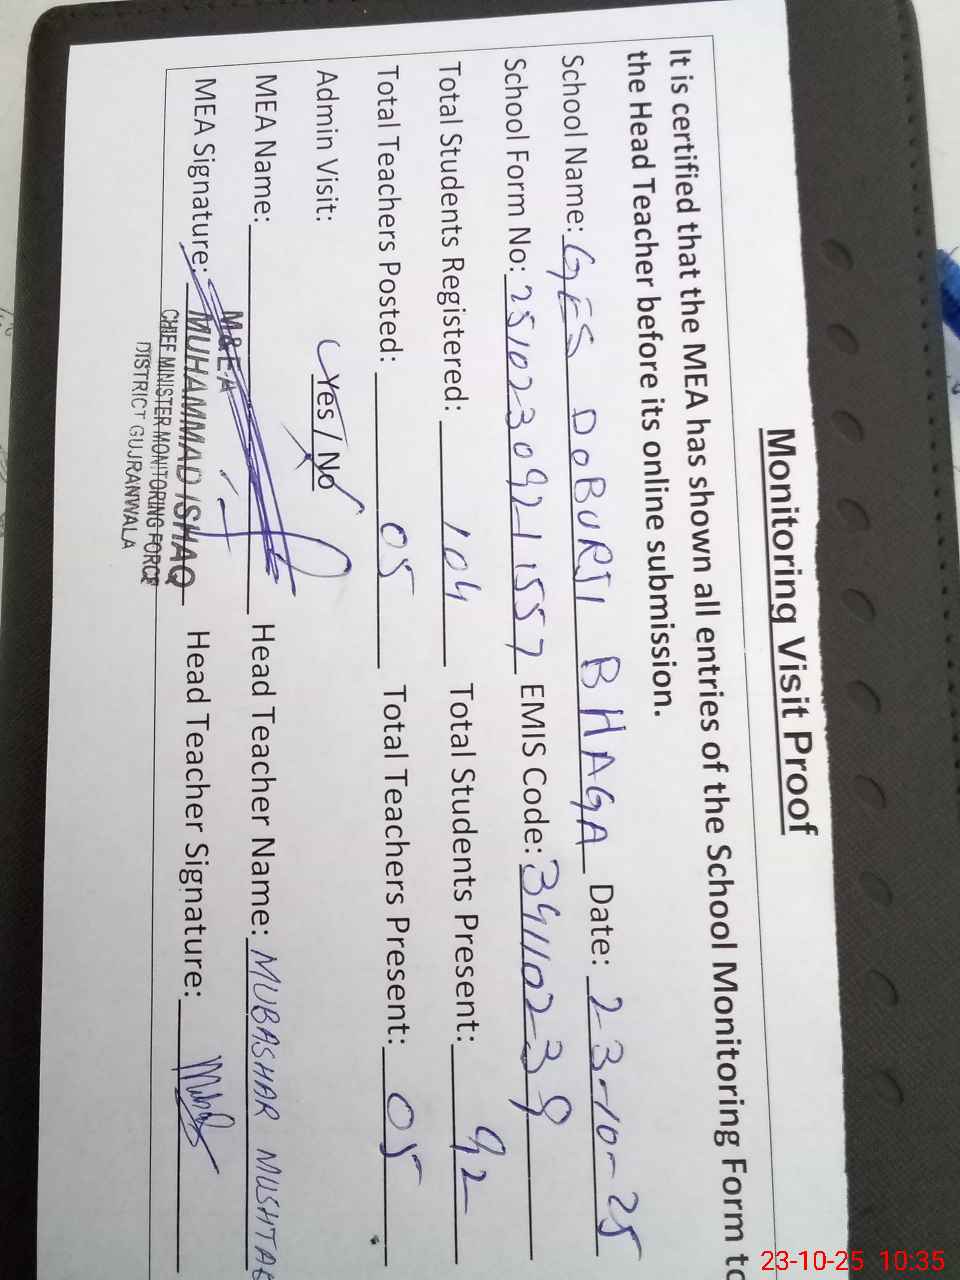 Monitoring Visit Proof
It is certified that the MEA has shown all entries of the School Monitoring Form to
the Head Teacher before its online submission.
School Name: GES DOBURJI BHAGA Date: 23-10-25
School Form No: 2510230921557 EMIS Code: 34110239
Total Students Registered: 104 Total Students Present: 92
Total Teachers Posted: 05 Total Teachers Present: 05
Admin Visit: Yes / No
MEA Name: Head Teacher Name: MUBASHAR MUSHTAQ
MEA Signature: Head Teacher Signature:
M&EA
MUHAMMAD ISHAQ
CHIEF MINISTER MONITORING FORCE
DISTRICT GUJRANWALA
23-10-25 10:35